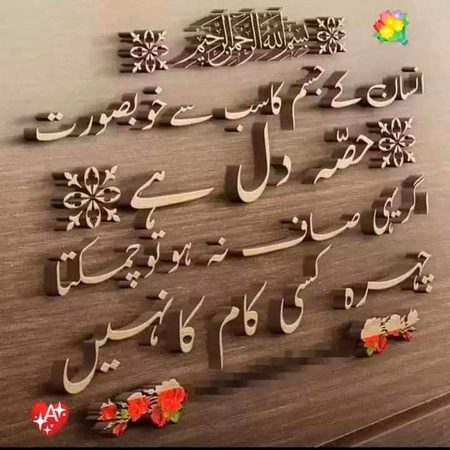 بسم الله الرحمن الرحیم
انسان کے جسم کا سب سے خوبصورت
حصّہ دل ہے
اگر یہی صاف نہ ہو تو چمکتا
چہرہ کسی کام کا نہیں
A